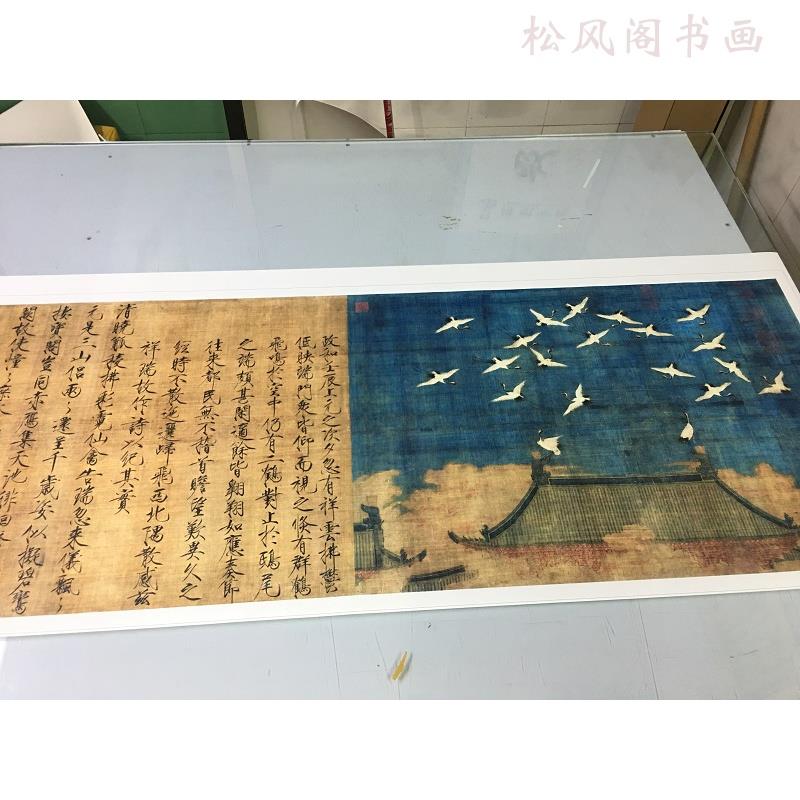 松风阁书画
政和壬辰上元之次夕忽有祥雲拂鬱
低映端門衆皆仰而視之倏有群鶴
飛鳴於空中仍有二鶴對止於鴟尾
之端頗甚閒適餘皆翱翔如應奏節
往來都民無不稽首瞻望歎異久之
經時不散迤邐歸飛西北隅散感茲
祥瑞故作詩以紀其實
清曉觚稜拂彩霓仙禽告瑞忽來儀飄々
元是三山侶兩々還呈千歲姿似擬碧鸞
棲寶閣豈同赤雁集天池徘徊
闕故使憧々庶